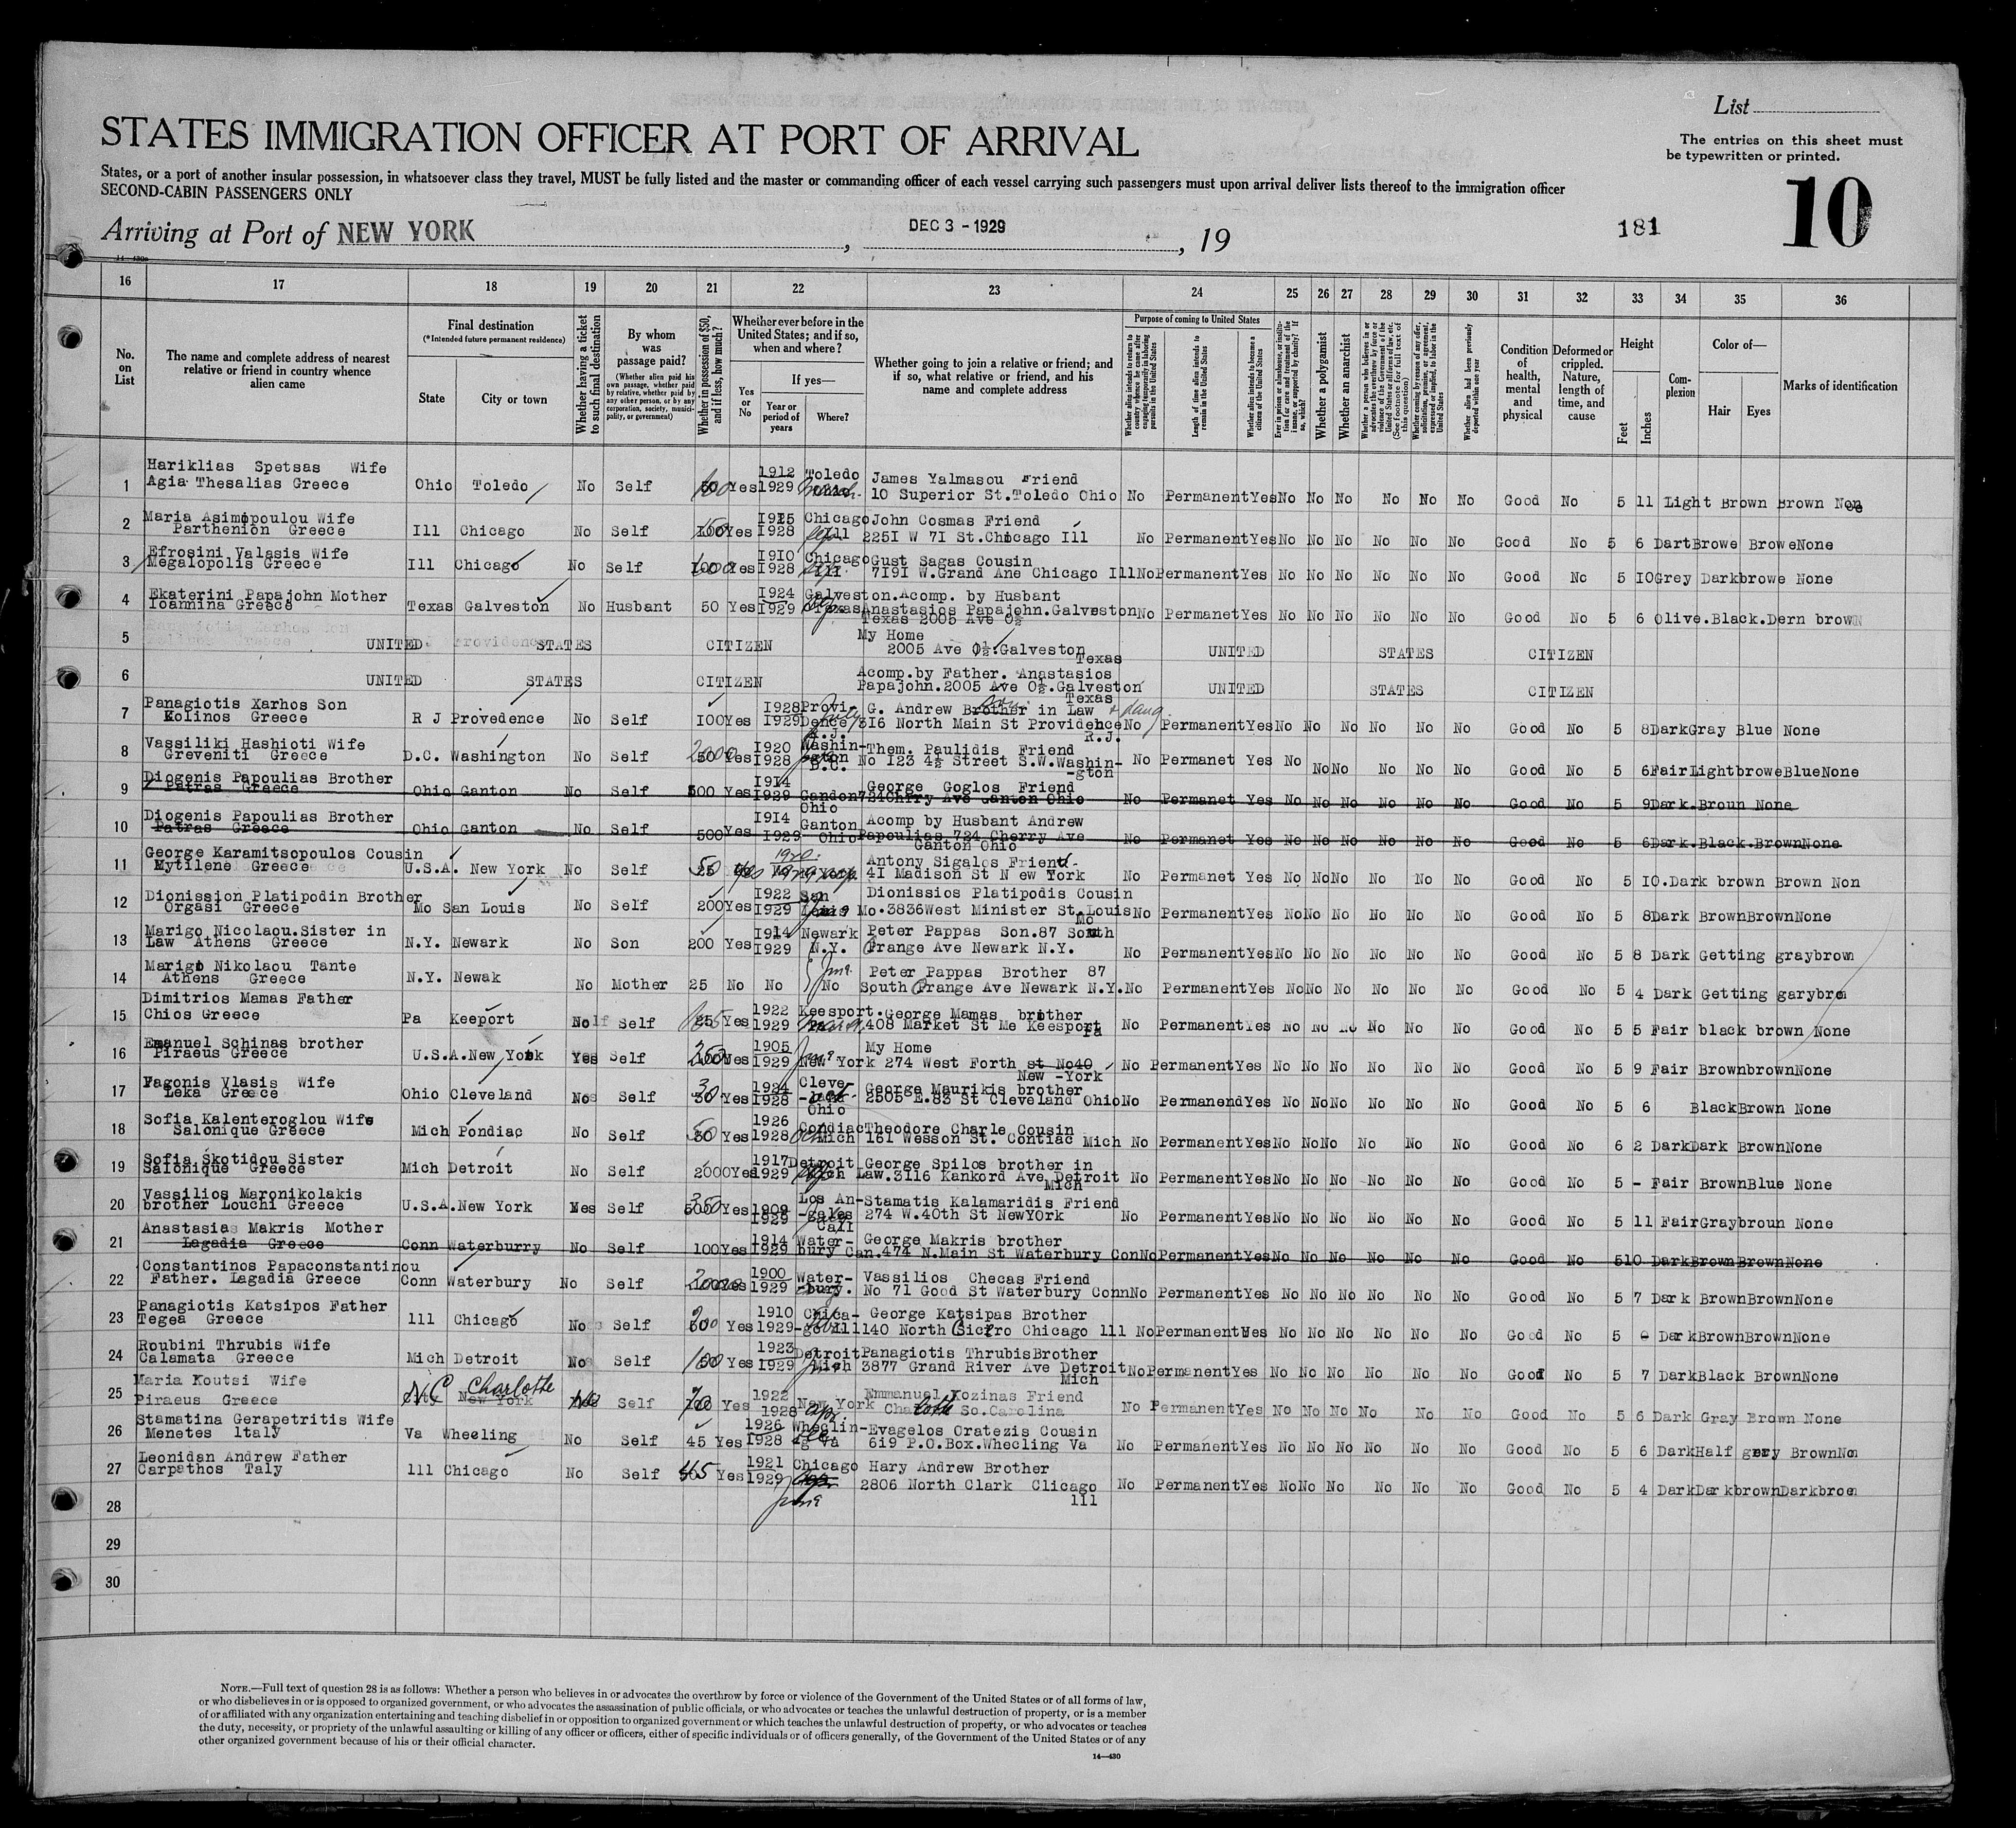 List
STATES IMMIGRATION OFFICER AT PORT OF ARRIVAL
The entries on this sheet must
be typewritten or printed.
States, or a port of another insular possession, in whatsoever class they travel, MUST be fully listed and the master or commanding officer of each vessel carrying such passengers must upon arrival deliver lists thereof to the immigration officer
SECOND-CABIN PASSENGERS ONLY
10
Arriving at Port of NEW YORK , DEC 3 - 1929 , 19 181
16 17 18 19 20 21 22 23 24 25 26 27 28 29 30 31 32 33 34 35 36
No. on List
The name and complete address of nearest relative or friend in country whence alien came
Final destination
(*Intended future permanent residence)
State
City or town
Whether having a ticket to such final destination
By whom was passage paid?
(Whether alien paid his own passage, whether paid by relative, whether paid by any other person, or by any corporation, society, municipality, or government)
Whether in possession of $50, and if less, how much?
Whether ever before in the United States; and if so, when and where?
Yes or No
If yes—
Year or period of years
Where?
Whether going to join a relative or friend; and if so, what relative or friend, and his name and complete address
Purpose of coming to United States
Whether alien intends to return to country whence he came after engaging temporarily in laboring pursuits in the United States
Length of time alien intends to remain in the United States
Whether alien intends to become a citizen of the United States
Ever in prison or almshouse, or institution for care and treatment of the insane, or supported by charity? If so, which?
Whether a polygamist
Whether an anarchist
Whether a person who believes in or advocates the overthrow by force or violence of the Government of the United States or all forms of law, etc. (See footnote for full text of this question)
Whether coming by reason of any offer, solicitation, promise, or agreement, expressed or implied, to labor in the United States
Whether alien had been previously deported within one year
Condition of health, mental and physical
Deformed or crippled. Nature, length of time, and cause
Height
Feet
Inches
Complexion
Color of—
Hair
Eyes
Marks of identification
Hariklias Spetsas Wife
1 Agia Thesalias Greece Ohio Toledo No Self Yes 1912 1929 Toledo James Yalmasou Friend
10 Superior St.Toledo Ohio No Permanent Yes No No No No No No Good No 5 11 Light Brown Brown None
2 Maria Asimopoulou Wife
Parthenion Greece Ill Chicago No Self Yes 1928 Chicago Ill John Cosmas Friend
225I W 7I St.Chicago Ill No Permanent Yes No No No No No No Good No 5 6 Dart Browe Browe None
3 Efrosini Valasis Wife
Megalopolis Greece Ill Chicago No Self Yes I9I0 I928 Chicago Ill Gust Sagas Cousin
7I9I W.Grand Ane Chicago Ill No Permanent Yes No No No No No No Good No 5 I0 Grey Dark browe None
4 Ekaterini Papajohn Mother
Ioannina Greece Texas Galveston No Husbant 50 Yes I924 I929 Galveston. Texas Acomp. by Husbant
Anastasios Papajohn.Galveston
Texas 2005 Ave O½ No Permanet Yes No No No No No No Good No 5 6 Olive. Black. Dern brown
5 UNITED STATES CITIZEN My Home
2005 Ave O½.Galveston
Texas UNITED STATES CITIZEN
6 UNITED STATES CITIZEN Acomp.by Father. Anastasios
Papajohn.2005 Ave O½.Galveston
Texas UNITED STATES CITIZEN
7 Panagiotis Xarhos Son
Kolinos Greece R J Provedence No Self I00 Yes I928 I929 Providence R.J. G. Andrew Brother in Law
3I6 North Main St Providence
R.J. No Permanent Yes No No No No No No Good No 5 8 Dark Gray Blue None
8 Vassiliki Hashioti Wife
Greveniti Greece D.C. Washington No Self Yes I920 I928 Washington D.C. Them. Paulidis Friend
No I23 4½ Street S.W.Washin-
-gton No Permanet Yes No No No No No No Good No 5 6 Fair Light browe Blue None
9 Diogenis Papoulias Brother
Patras Greece Ohio Ganton No Self 500 Yes I9I4 I929 Gandon Ohio George Goglos Friend
724 Chrry Ave Canton Ohio No Permanet Yes No No No No No No Good No 5 9 Dark. Broun None
10 Diogenis Papoulias Brother
Patras Greece Ohio Ganton No Self 500 Yes I9I4 I929 Ganton Ohio Acomp by Husbant Andrew
Papoulias 724 Cherry Ave
Ganton Ohio No Permanet Yes No No No No No No Good No 5 6 Dark. Black. Brown None
11 George Karamitsopoulos Cousin
Mytilene Greece U.S.A. New York No Self 50 Yes 1920 Antony Sigalos Friend
4I Madison St New York No Permanet Yes No No No No No No Good No 5 I0. Dark brown Brown Non
12 Dionission Platipodin Brother
Orgasi Greece Mo San Louis No Self 200 Yes I922 I929 San Louis Mo. Dionissios Platipodis Cousin
3836 West Minister St.Louis
Mo No Permanent Yes No No No No No No Good No 5 8 Dark Brown Brown None
13 Marigo Nicolaou.Sister in
Law Athens Greece N.Y. Newark No Son 200 Yes I9I4 I929 Newark N.Y. Peter Pappas Son.87 South
Orange Ave Newark N.Y. No Permanent Yes No No No No No No Good No 5 8 Dark Getting gray brown
14 Marigo Nikolaou Tante
Athens Greece N.Y. Newak No Mother 25 No No No Peter Pappas Brother 87
South Orange Ave Newark N.Y. No Permanent Yes No No No No No No Good No 5 4 Dark Getting gary
15 Dimitrios Mamas Father
Chios Greece Pa Keeport No Self Yes 1922 1929 Keesport. George Mamas brother
408 Market St Mc Keesport
Pa No Permanent Yes No No No No No No Good No 5 5 Fair black brown None
16 Emanuel Schinas brother
Piraeus Greece U.S.A. New York Yes Self Yes 1905 1929 New York My Home
274 West Forth st No40
New -York No Permanent Yes No No No No No No Good No 5 9 Fair Brown brown None
17 Pagonis Vlasis Wife
Leka Greece Ohio Cleveland No Self 30 Yes 1928 Cleve- Ohio George Maurikis brother
2505 E.83 St Cleveland Ohio No Permanend Yes No No No No No No Good No 5 6 Black Brown None
18 Sofia Kalenteroglou Wife
Salonique Greece Mich Pondiac No Self 50 Yes 1926 1928 Condiac Mich Theodore Charle Cousin
161 Wesson St. Contiac Mich No Permanent Yes No No No No No No Good No 6 2 Dark Dark Brown None
19 Sofia Skotidou Sister
Salonique Greece Mich Detroit No Self 2000 Yes 1917 1929 Detroit Mich George Spilos brother in
Law.3116 Kankord Ave Detroit
Mich No Permanent Yes No No No No No No Good No 5 - Fair Brown Blue None
20 Vassilios Maronikolakis
brother Louchi Greece U.S.A. New York Yes Self 350 Yes 1909 1929 Los An-geles Call Stamatis Kalamaridis Friend
274 W.40th St NewYOrk No Permanent Yes No No No No No No Good No 5 11 Fair Gray broun None
21 Anastasias Makris Mother
Lagadia Greece Conn Waterburry No Self 100 Yes 1914 1929 Water-bury Can. George Makris brother
474 N.Main St Waterbury Con No Permanent Yes No No No No No No Good No 5 10 Dark Brown Brown None
22 Constantinos Papaconstantinou
Father. Lagadia Greece Conn Waterbury No Self Yes 1900 1929 Water-bury. Vassilios Checas Friend
No 71 Good St Waterbury Conn No Permanent Yes No No No No No No Good No 5 7 Dark Brown Brown None
23 Panagiotis Katsipos Father
Tegea Greece lll Chicago No Self 200 Yes 1910 1929 Chica-go ill George Katsipas Brother
140 North Cicero Chicago lll No Permanent Yes No No No No No No Good No 5 Dark Brown Brown None
24 Roubini Thrubis Wife
Calamata Greece Mich Detroit No Self 100 Yes 1923 1929 Detroit Mich Panagiotis Thrubis Brother
3877 Grand River Ave Detroit
Mich No Permanent Yes No No No No No No Good No 5 7 Dark Black Brown None
25 Maria Koutsi Wife
Piraeus Greece N.C Charlotte New York Self 70 Yes 1922 1928 New York Emmanuel Kozinas Friend
Charlotte So.Carolina No Permanent Yes No No No No No No Good No 5 6 Dark Gray Brown None
26 Stamatina Gerapetritis Wife
Menetes ltaly Va Wheeling No Self 45 Yes 1926 1928 Wheelin-g Va Evagelos Oratezis Cousin
619 P.O.Box.Wheeling Va No Permanent Yes No No No No No No Good No 5 6 Dark Half grey Brown Non
27 Leonidan Andrew Father
Carpathos Taly lll Chicago No Self 45 Yes 1921 1929 Chicago Hary Andrew Brother
2806 North Clark Clicago
lll No Permanent Yes No No No No No No Good No 5 4 Dark Dark brown Dark
June
28
29
30
NOTE.—Full text of question 28 is as follows: Whether a person who believes in or advocates the overthrow by force or violence of the Government of the United States or of all forms of law,
or who disbelieves in or is opposed to organized government, or who advocates the assassination of public officials, or who advocates or teaches the unlawful destruction of property, or is a member
of or affiliated with any organization entertaining and teaching disbelief in or opposition to organized government or which teaches the unlawful destruction of property, or who advocates or teaches
the duty, necessity, or propriety of the unlawful assaulting or killing of any officer or officers, either of specific individuals or of officers generally, of the Government of the United States or of any
other organized government because of his or their official character.
14—430